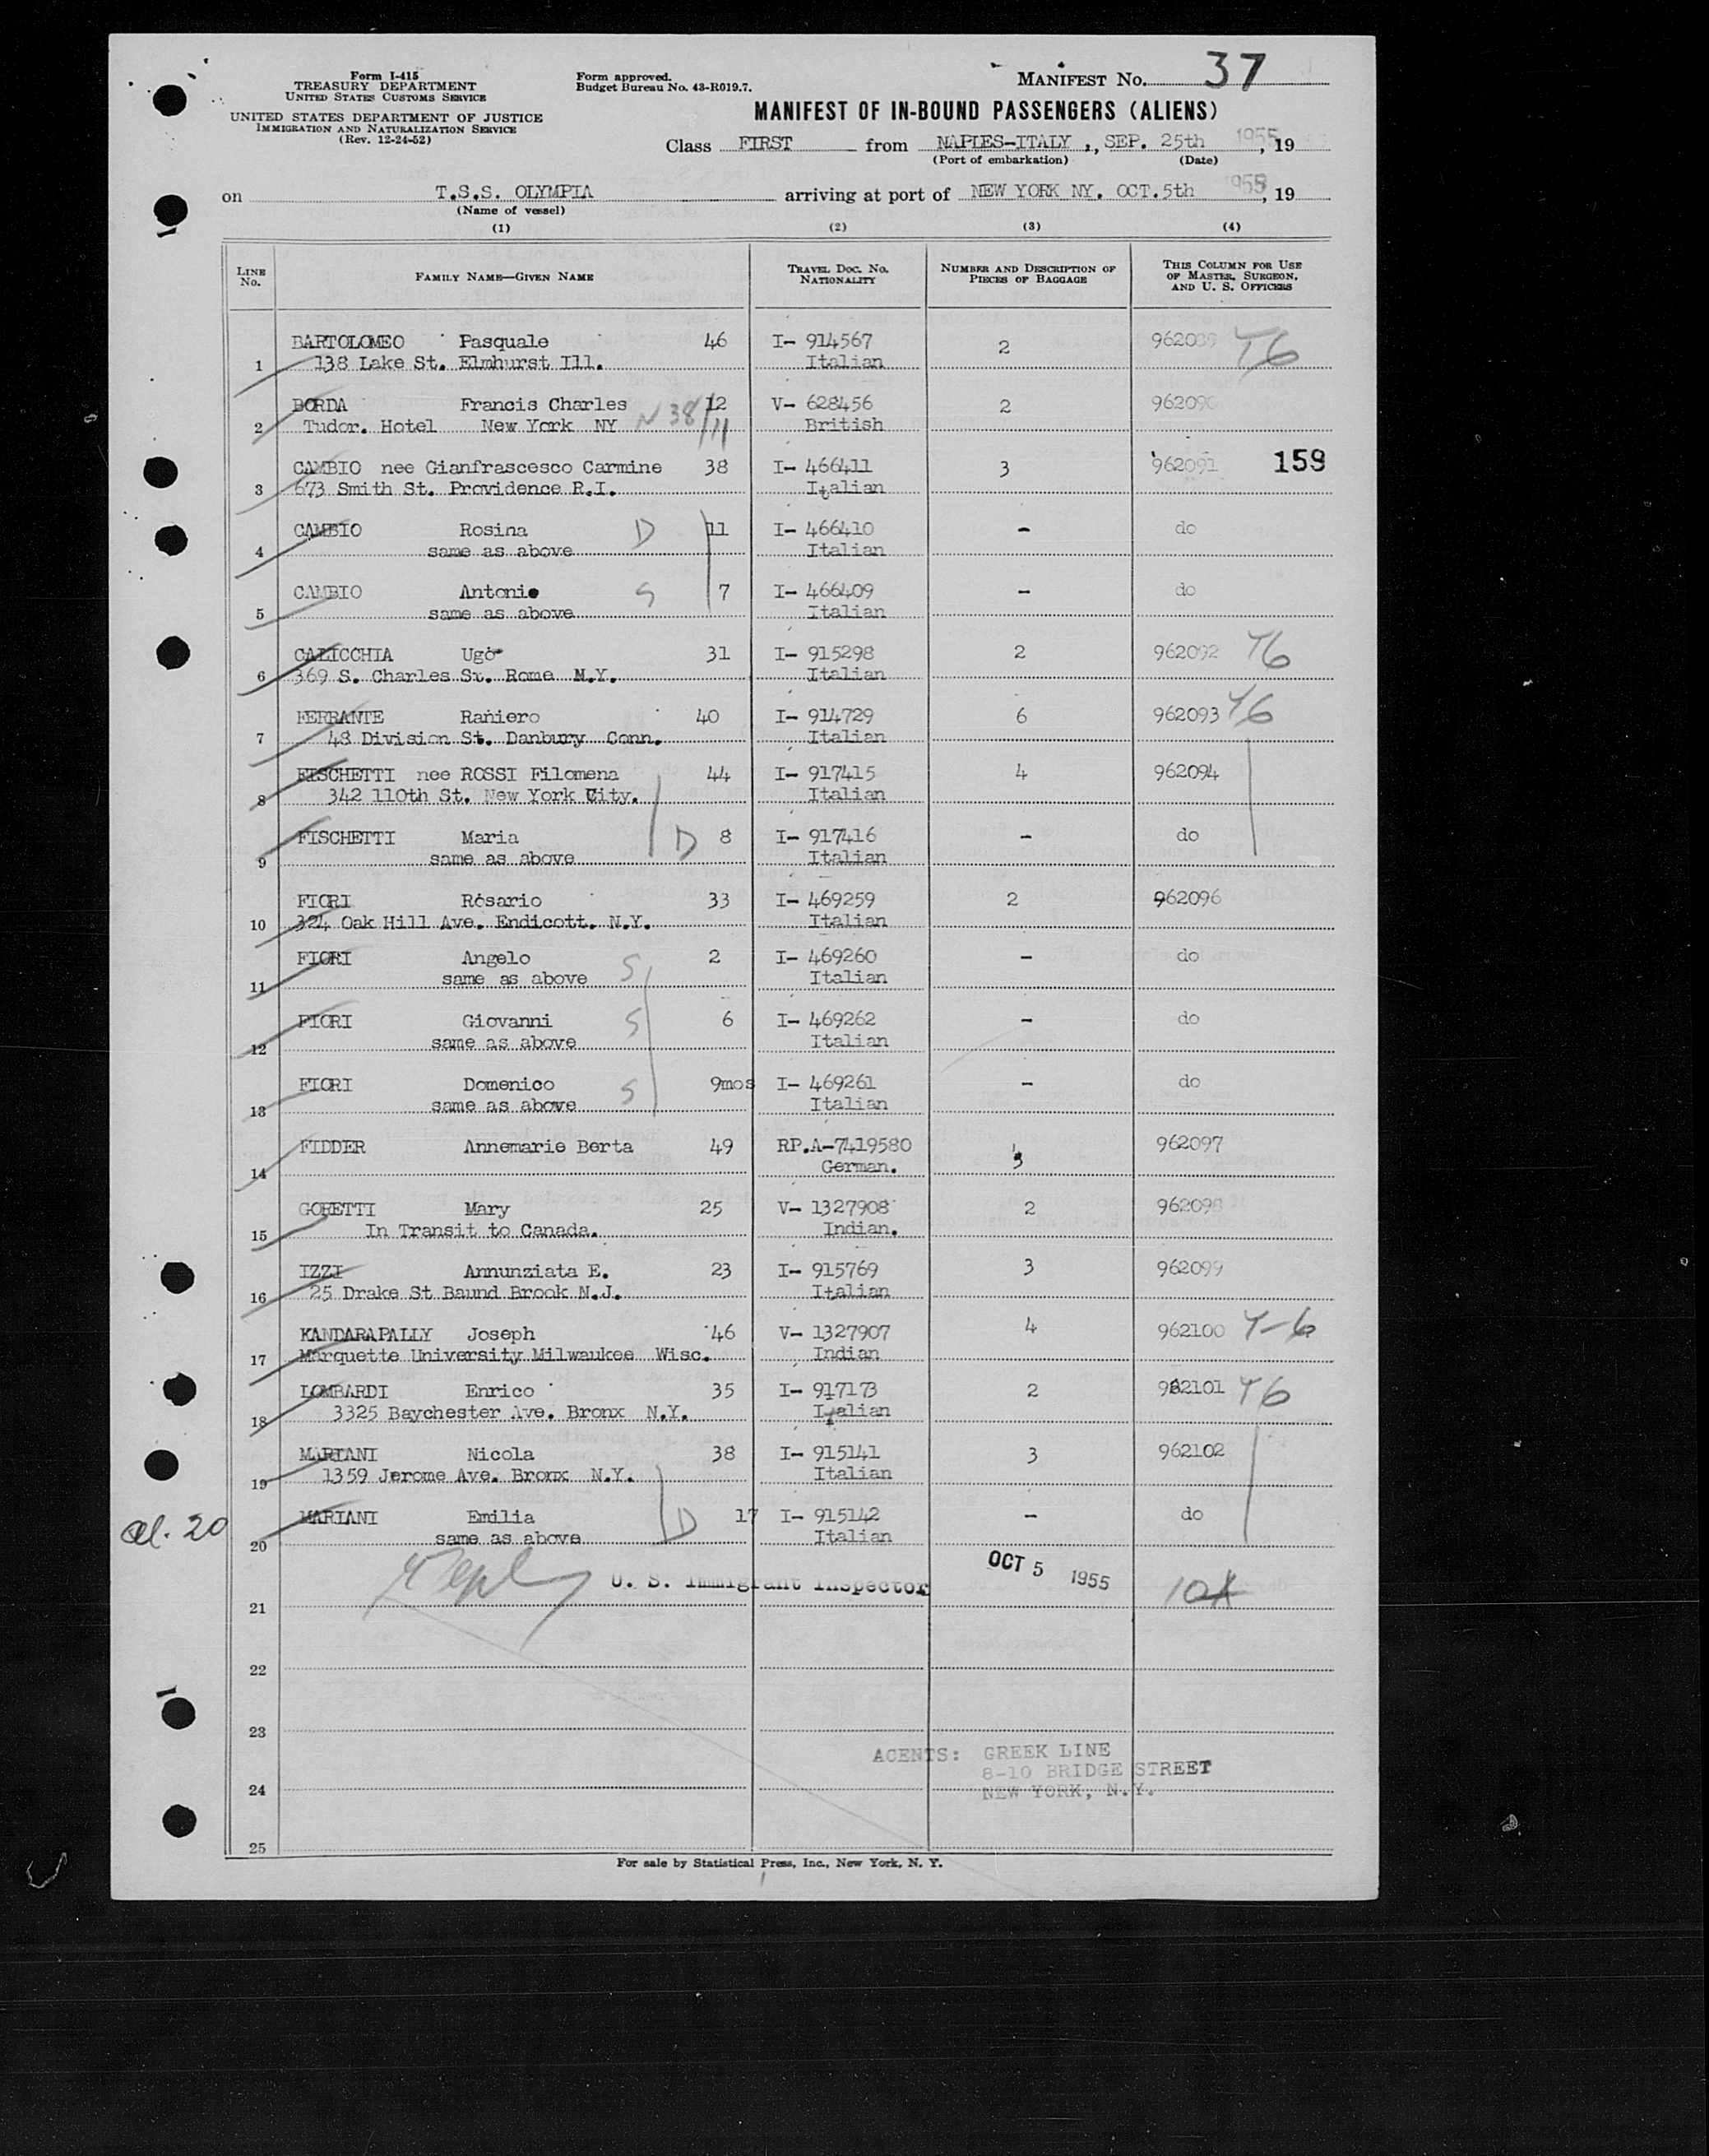 Form I-415
TREASURY DEPARTMENT
UNITED STATES CUSTOMS SERVICE
UNITED STATES DEPARTMENT OF JUSTICE
IMMIGRATION AND NATURALIZATION SERVICE
(Rev. 12-24-52)
Form approved.
Budget Bureau No. 43-R019.7.
MANIFEST NO. 37
MANIFEST OF IN-BOUND PASSENGERS (ALIENS)
Class FIRST from NAPLES-ITALY ,, SEP. 25th 1955, 19
(Port of embarkation) (Date)
on T.S.S. OLYMPIA arriving at port of NEW YORK NY. OCT.5th 1955, 19
(Name of vessel)
(1) (2) (3) (4)
LINE No. FAMILY NAME—GIVEN NAME TRAVEL DOC. NO. NATIONALITY NUMBER AND DESCRIPTION OF PIECES OF BAGGAGE THIS COLUMN FOR USE OF MASTER, SURGEON, AND U. S. OFFICERS
BARTOLOMEO Pasquale 46 I- 914567 2 962089 Y6
1 138 Lake St. Elmhurst Ill. Italian
BORDA Francis Charles 12 V- 628456 2 962090
2 Tudor. Hotel New York NY N 38/11 British
CAMBIO nee Gianfrascesco Carmine 38 I- 466411 3 962091 159
3 673 Smith St. Providence R.I. Italian
CAMBIO Rosina D 11 I- 466410 - do
4 same as above Italian
CAMBIO Antonio S 7 I- 466409 - do
5 same as above Italian
CALICCHIA Ugo 31 I- 915298 2 962092 Y6
6 369 S. Charles St. Rome N.Y. Italian
FERRANTE Raniero 40 I- 914729 6 962093 Y6
7 48 Division St. Danbury Conn. Italian
FISCHETTI nee ROSSI Filomena 44 I- 917415 4 962094
8 342 110th St. New York City. Italian
FISCHETTI Maria D 8 I- 917416 - do
9 same as above Italian
FIORI Rosario 33 I- 469259 2 962096
10 324 Oak Hill Ave. Endicott. N.Y. Italian
FIORI Angelo S 2 I- 469260 - do
11 same as above Italian
FIORI Giovanni S 6 I- 469262 - do
12 same as above Italian
FIORI Domenico S 9mos I- 469261 - do
13 same as above Italian
FIDDER Annemarie Berta 49 RP.A-7419580 3 962097
14 German.
GORETTI Mary 25 V- 1327908 2 962098
15 In Transit to Canada. Indian.
IZZI Annunziata E. 23 I- 915769 3 962099
16 25 Drake St Baund Brook N.J. Italian
KANDARAPALLY Joseph 46 V- 1327907 4 962100 Y-6
17 Marquette University Milwaukee Wisc. Indian
LOMBARDI Enrico 35 I- 917173 2 962101 Y6
18 3325 Baychester Ave. Bronx N.Y. Italian
MARIANI Nicola 38 I- 915141 3 962102
19 1359 Jerome Ave. Bronx N.Y. Italian
al. 20 MARIANI Emilia D 17 I- 915142 - do
20 same as above Italian
U. S. Immigrant Inspector OCT 5 1955
21
22
23
AGENTS: GREEK LINE
8-10 BRIDGE STREET
24 NEW YORK, N.Y.
25
For sale by Statistical Press, Inc., New York, N. Y.